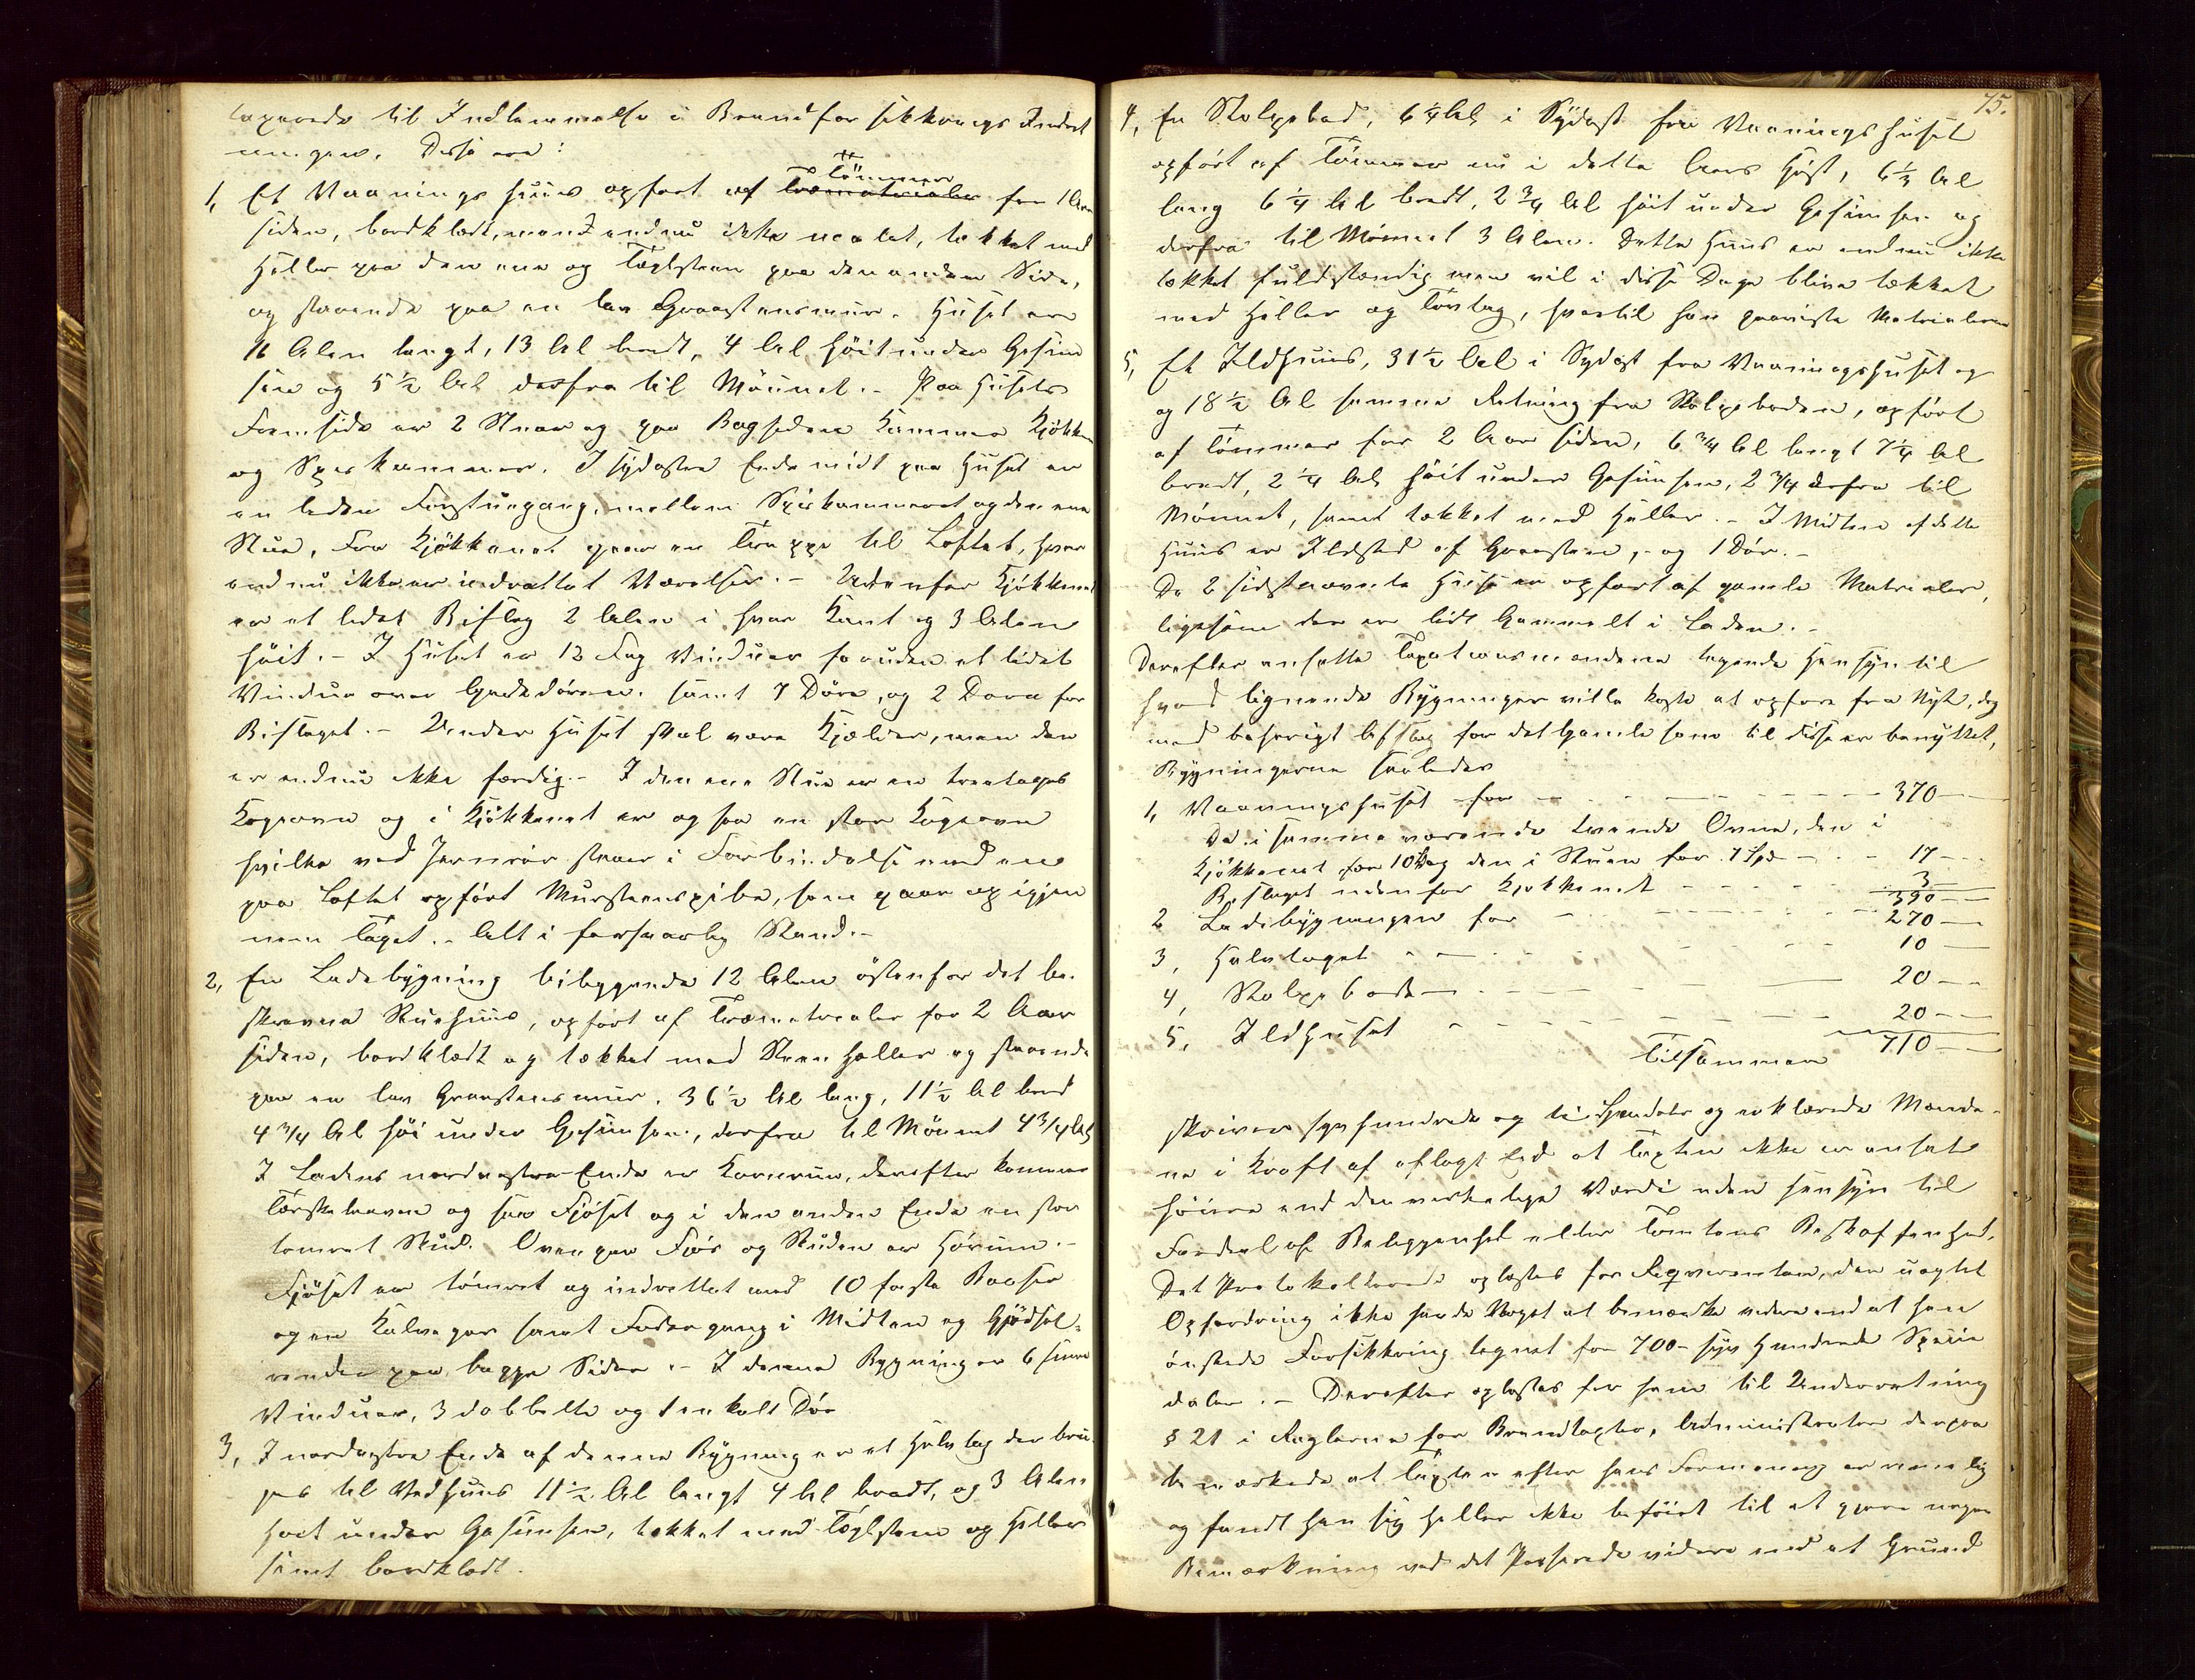 taxerede til Indlemmelse i Brandforsikkrings Indret
ningen. Disse ere:
1, Et Vaanings huus opført af Tömmer for 1 Aar
siden, bordklædt, mend endnu ikke malet, tækket med
Heller paa den ene og Tæglsteen paa den anden Side,
og staaende paa en lav Graasteensmuur. Huset er
16 Alen langt, 13 Al bredt, 4 Al höit under Gesim
sen og 5 1/2 Al derfra til Mönnet. - Paa Husets
Fremside er 2 Stuer og paa Bagsiden Kammer Kjökken
og Spiskammer. I sydøstre Ende midt paa Huset er
en liden Forstuegang, mellem Spiskammeret og den ene
Stue, Fra Kjökkenet gaar en Trappe til Loftet, hvor
endnu ikke er indrettet Værelser. - Udenfor Kjökkenet
er et lidet Bislag 2 Alen i hver Kant og 3 Alen
höit. - I Huset er 12 Fag Vinduer foruden et lidet
Vindue over Gadedören. samt 7 Döre, og 2 Döre for
Bislaget. - Under Huset skal være Kjælder, men den
er endnu ikke færdig. - I den ene Stue er en treetages
Kogeovn og i Kjökkenet er ogsaa en stor Kogeovn
hvilke ved Jernrör staar i Forbindelse med en
paa Loftet opfört Muursteenspibe, som gaar op igjen
nem Taget. - Alt i forsvarlig Stand. -
2, En Ladebygning beliggende 12 Alen östenfor det be-
skrevne Stuehuus, opfört af Træmaterialer for 2 Aar
siden, bordklædt og tækket med Steen Heller og staaende
paa en lav Graasteensmuur. 36 1/2 Al lang, 11 1/2 Al bred
4 3/4 Al höi under Gesimsen, derfra til Mönnet 4 3/4 Al
I Ladens nordvestre Ende er Kornrum, derefter kommer
Tærskelaaven og saa Fjöset og i den anden Ende en stor
tömret Skud. Oven paa Fjös og Skuden er Hörum. -
Fjöset er tömret og indrettet med 10 faste Baaser
og en Kalvegar samt Fodergang i Midten og Gjödsel-
render paa begge Sider. - I denne Bygning er 6 smaa
Vinduer, 3 dobbelte og 1 enkelt Dör
3, I nordvestre Ende af denne Bygning er et Halvtag der bru-
ges til Vedhuus 11 1/2 Al langt 4 Al bredt, og 3 Alen
höit under Gesimsen, tækket med Tæglsteen og Heller
samt bordklædt.
75.
4, En Stolpebod, 6 1/4 Al i Sydöst fra Vaaningshuset
opfört af Tömmer nu i dette Aars Höst, 6 1/2 Al
lang 6 1/4 Al bredt, 2 3/4 Al höit under Gesimsen og
derfra til Mönnet 3 Alen. Dette Huus er endnu ikke
tækket fuldstændig men vil i disse Dage blive tækket
med Heller og Torvtag, hvortil han paaviste Materialerne
5, Et Ildhuus, 31 1/2 Al i Sydöst fra Vaaningshuset og
og 18 1/2 Al samme Retning fra Stolpeboden, opfört
af Tömmer for 2 Aar siden, 6 3/4 Al langt 7 1/4 Al
bredt, 2 1/4 Al höit under Gesimsen, 2 3/4 derfra til
Mönnet, samt tækket med Heller. - I Midten af dette
Huus er Ildsted af Graasteen, - og 1 Dör. -
De 2 sidstnævnte Huse er opfört af gamle Materialer,
ligesom der er lidt Gammelt i Laden. -
Derefter ansatte Taxationsmændene tagende Hensyn til
hvad lignende Bygninger ville koste at opföre fra Nyt, dog
med behørigt Afslag for det Gamle som til disse er benyttet,
Bygningerne saaledes
1, Vaaningshuset for - - - 370 -
De i samme værende tvende Ovne, den i
Kjökkenet for 10 Spd og den i Stuen for 7 Spd - - 17 -
Bislaget uden for Kjökkenet - - - 3 -
390 -
2 Ladebygningen for - - - 270 -
3, Halvtaget - - - 10 -
4, Stolpeboden - - - 20 -
5, Ildhuset - - - 20 -
Tilsammen 710 -
skriver syvhundrede og ti Spesdaler og erklærede Mænde-
ne i Kraft af aflagt Eed at Taxten ikke er ansat
höiere end den virkelige Værdi uden Hensyn til
Fordeel af Beliggenhed eller Tomtens Beskaffenhed.
Det Protokollerede oplæstes for Reqvirenten, der uagtet
Opfordring ikke havde Noget at bemærke videre end at han
önskede Forsikkring tegnet for 700 - syv Hundrede Specie
daler. - Derefter oplæstes for ham til Underretning
§ 21 i Reglerne for Brandtaxter, Administrator derpaa
bemærkede at Taxten efter hans Formening er rimelig
og fandt han sig heller ikke beföiet til at gjøre nogen
Bemærkning ved det Passerede videre end at Grund